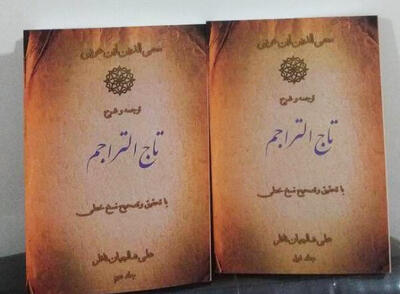 محی الدین ابن عربی
ترجمه و شرح
تاج التراجم
با تحقیق و تصحیح نسخ خطی
جلد اول
محی الدین ابن عربی
ترجمه و شرح
تاج التراجم
با تحقیق و تصحیح نسخ خطی
جلد دوم